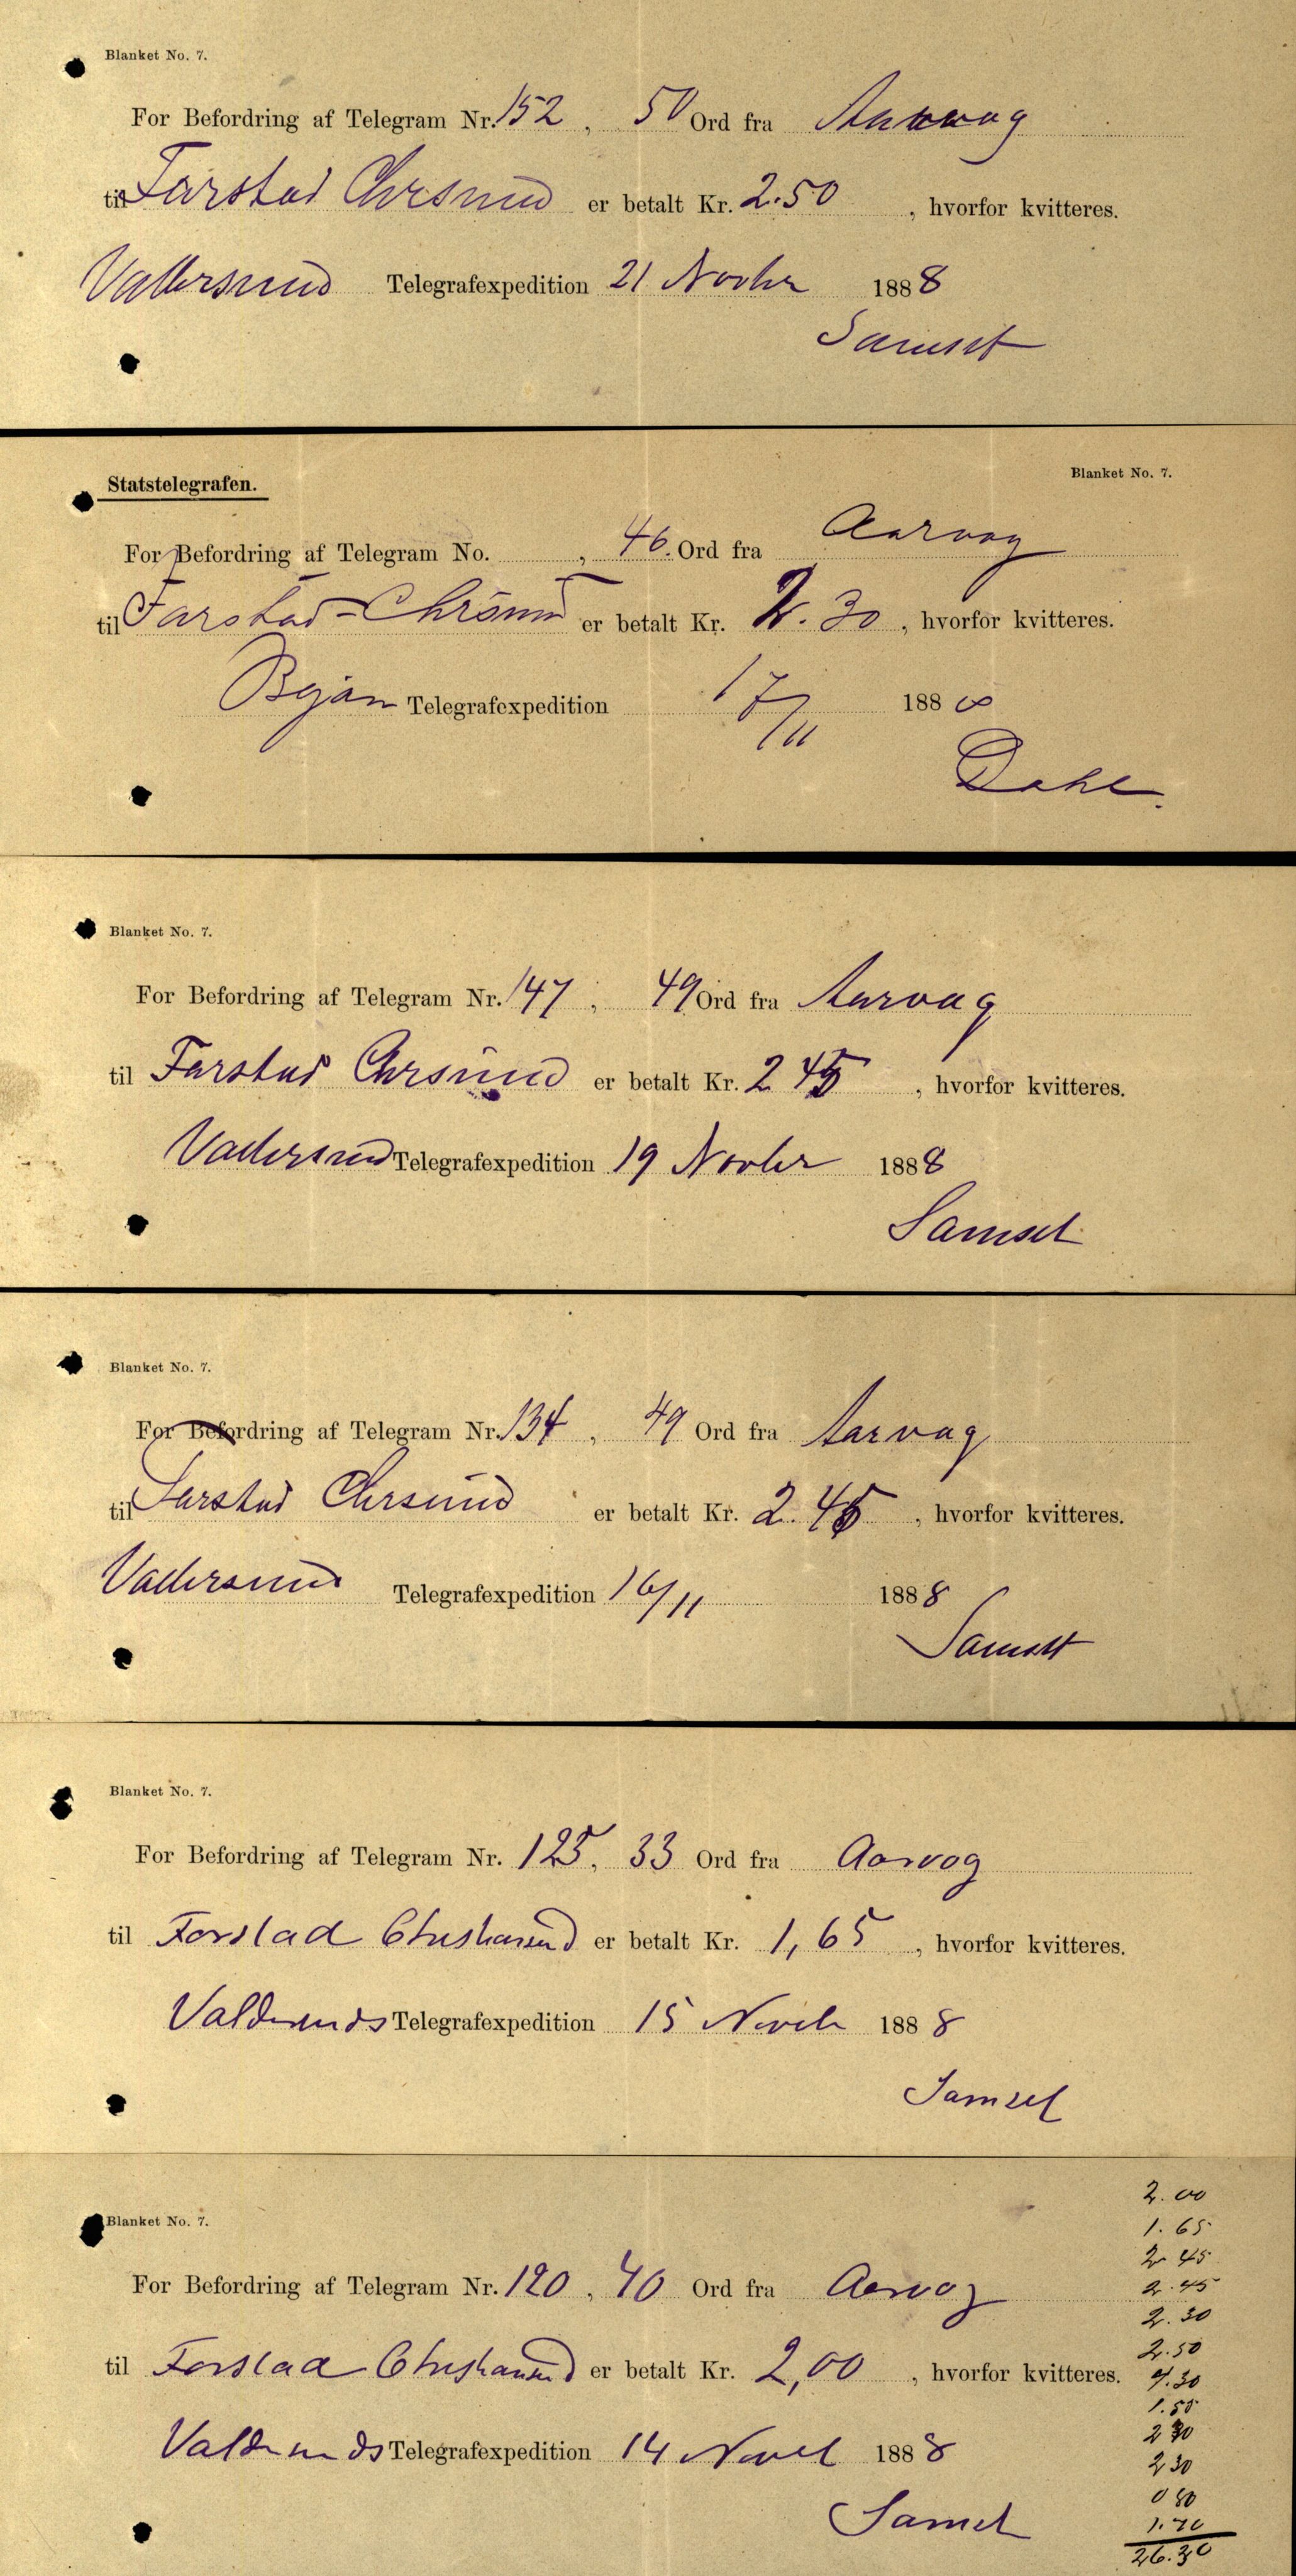 Blanket No. 7.
For Befordring af Telegram Nr. 152, 50 Ord fra Aarvag
til Farstad Chrsund er betalt Kr. 2.50, hvorfor kvitteres.
Vallersund Telegrafexpedition 21 Novbr 1888
Samset
Statstelegrafen.
Blanket No. 7.
For Befordring af Telegram No. , 46. Ord fra Aarvag
til Farstad-Chrsund er betalt Kr. 2.30, hvorfor kvitteres.
Bejan Telegrafexpedition 17/11 1888
Dahl.
Blanket No. 7.
For Befordring af Telegram Nr. 147, 49 Ord fra Aarvag
til Farstad Chrsund er betalt Kr. 2 45, hvorfor kvitteres.
Vallersund Telegrafexpedition 19 Novbr 1888
Samset
Blanket No. 7.
For Befordring af Telegram Nr. 134, 49 Ord fra Aarvag
til Farstad Chrsund er betalt Kr. 2.45, hvorfor kvitteres.
Vallersund Telegrafexpedition 16/11 1888
Samset
Blanket No. 7.
For Befordring af Telegram Nr. 125, 33 Ord fra Aarvog
til Forstad Christiansund er betalt Kr. 1,65, hvorfor kvitteres.
Valdersunds Telegrafexpedition 15 Novb 1888
Samset
Blanket No. 7.
For Befordring af Telegram Nr. 120, 40 Ord fra Aarvog
til Forstad Christiansund er betalt Kr. 2,00, hvorfor kvitteres.
Valdersunds Telegrafexpedition 14 Novb 1888
Samset
2.00
1.65
2 45
2.45
2.30
2.50
4.30
1.55
2 30
2 30
0 80
1.70
26.30